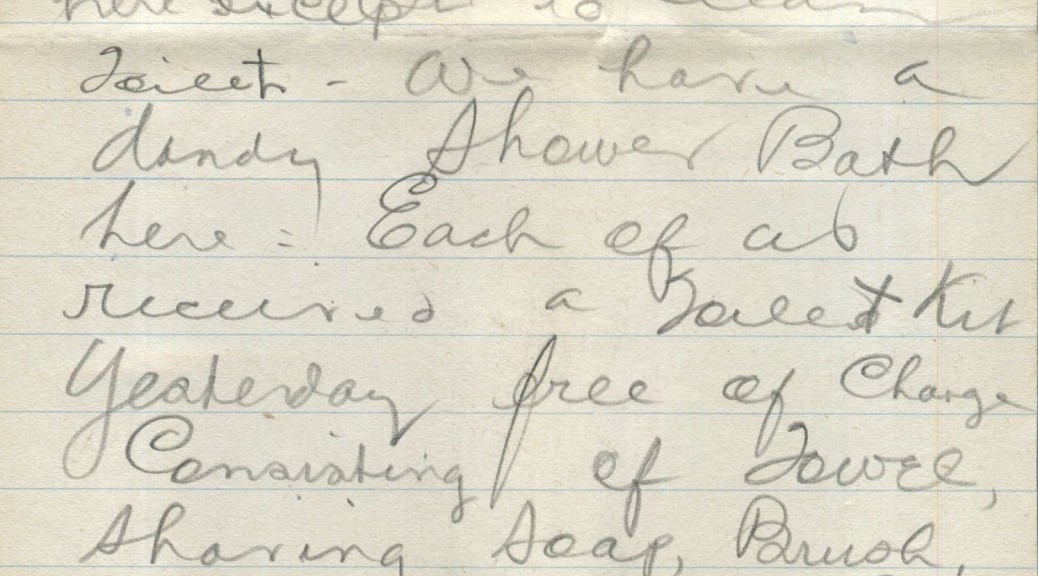 here except to clean
Toilet - We have a
dandy Shower Bath
here = Each of us
received a Toilet Kit
Yesterday free of Charge
Consisting of Towel,
Shaving Soap, Brush,